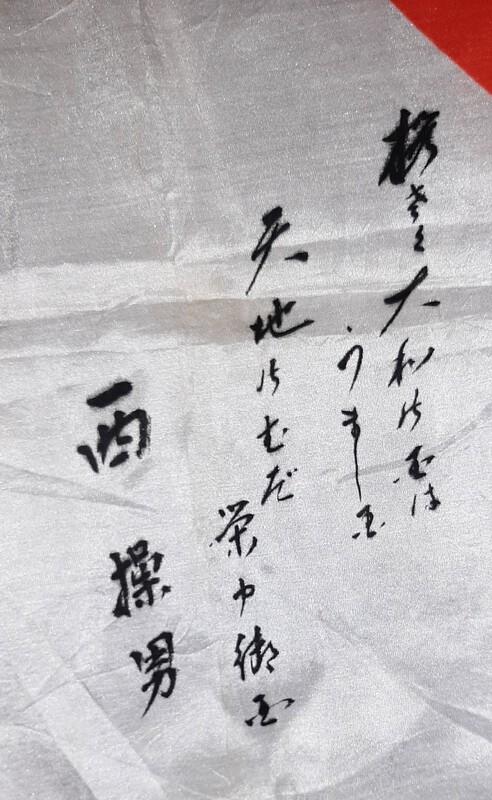 桜さく大和の国は
うまし国
天地のむだ
栄ゆ御国
西 操男